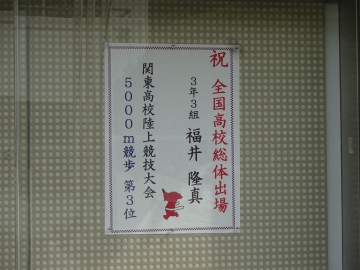 祝 全国高校総体出場
3年3組 福井 隆真
関東高校陸上競技大会
5000m競歩 第3位